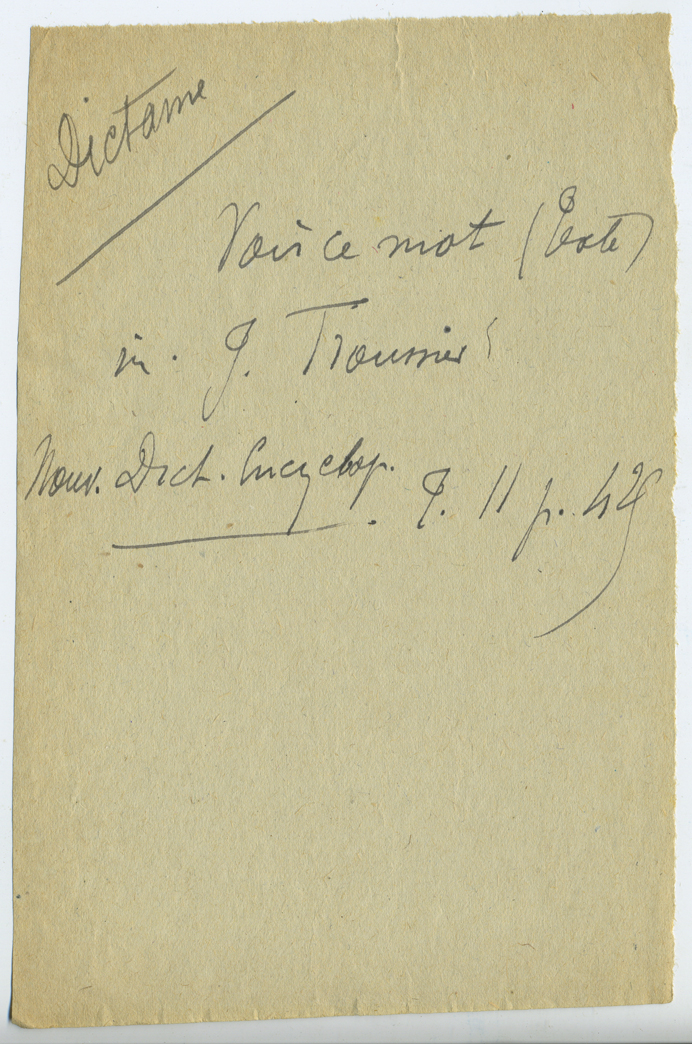 Dictame
Voir ce mot (Texte)
in. J. Troussier
Nouv. Dict. Encyclop. T. II p. 425